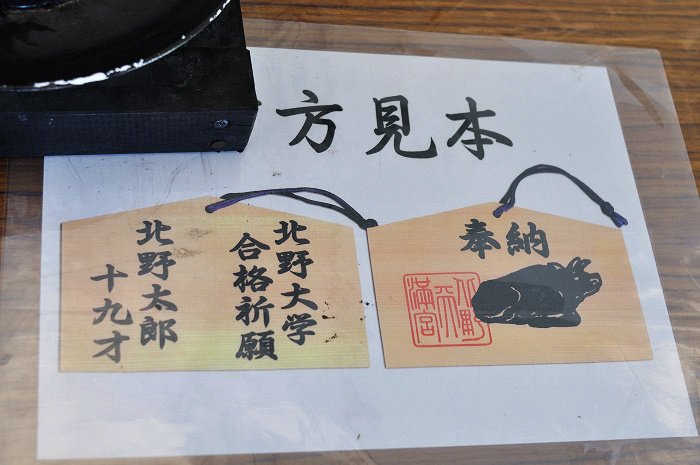 方見本
北野大学
合格祈願
北野太郎
十九才
奉納
北野天満宮